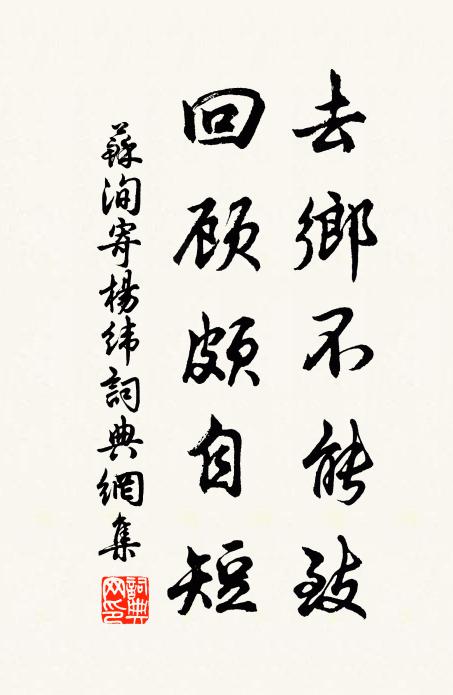 去鄉不能致
回顾頗自短
蘇洵寄楊緯詞典網集
詞典
网印